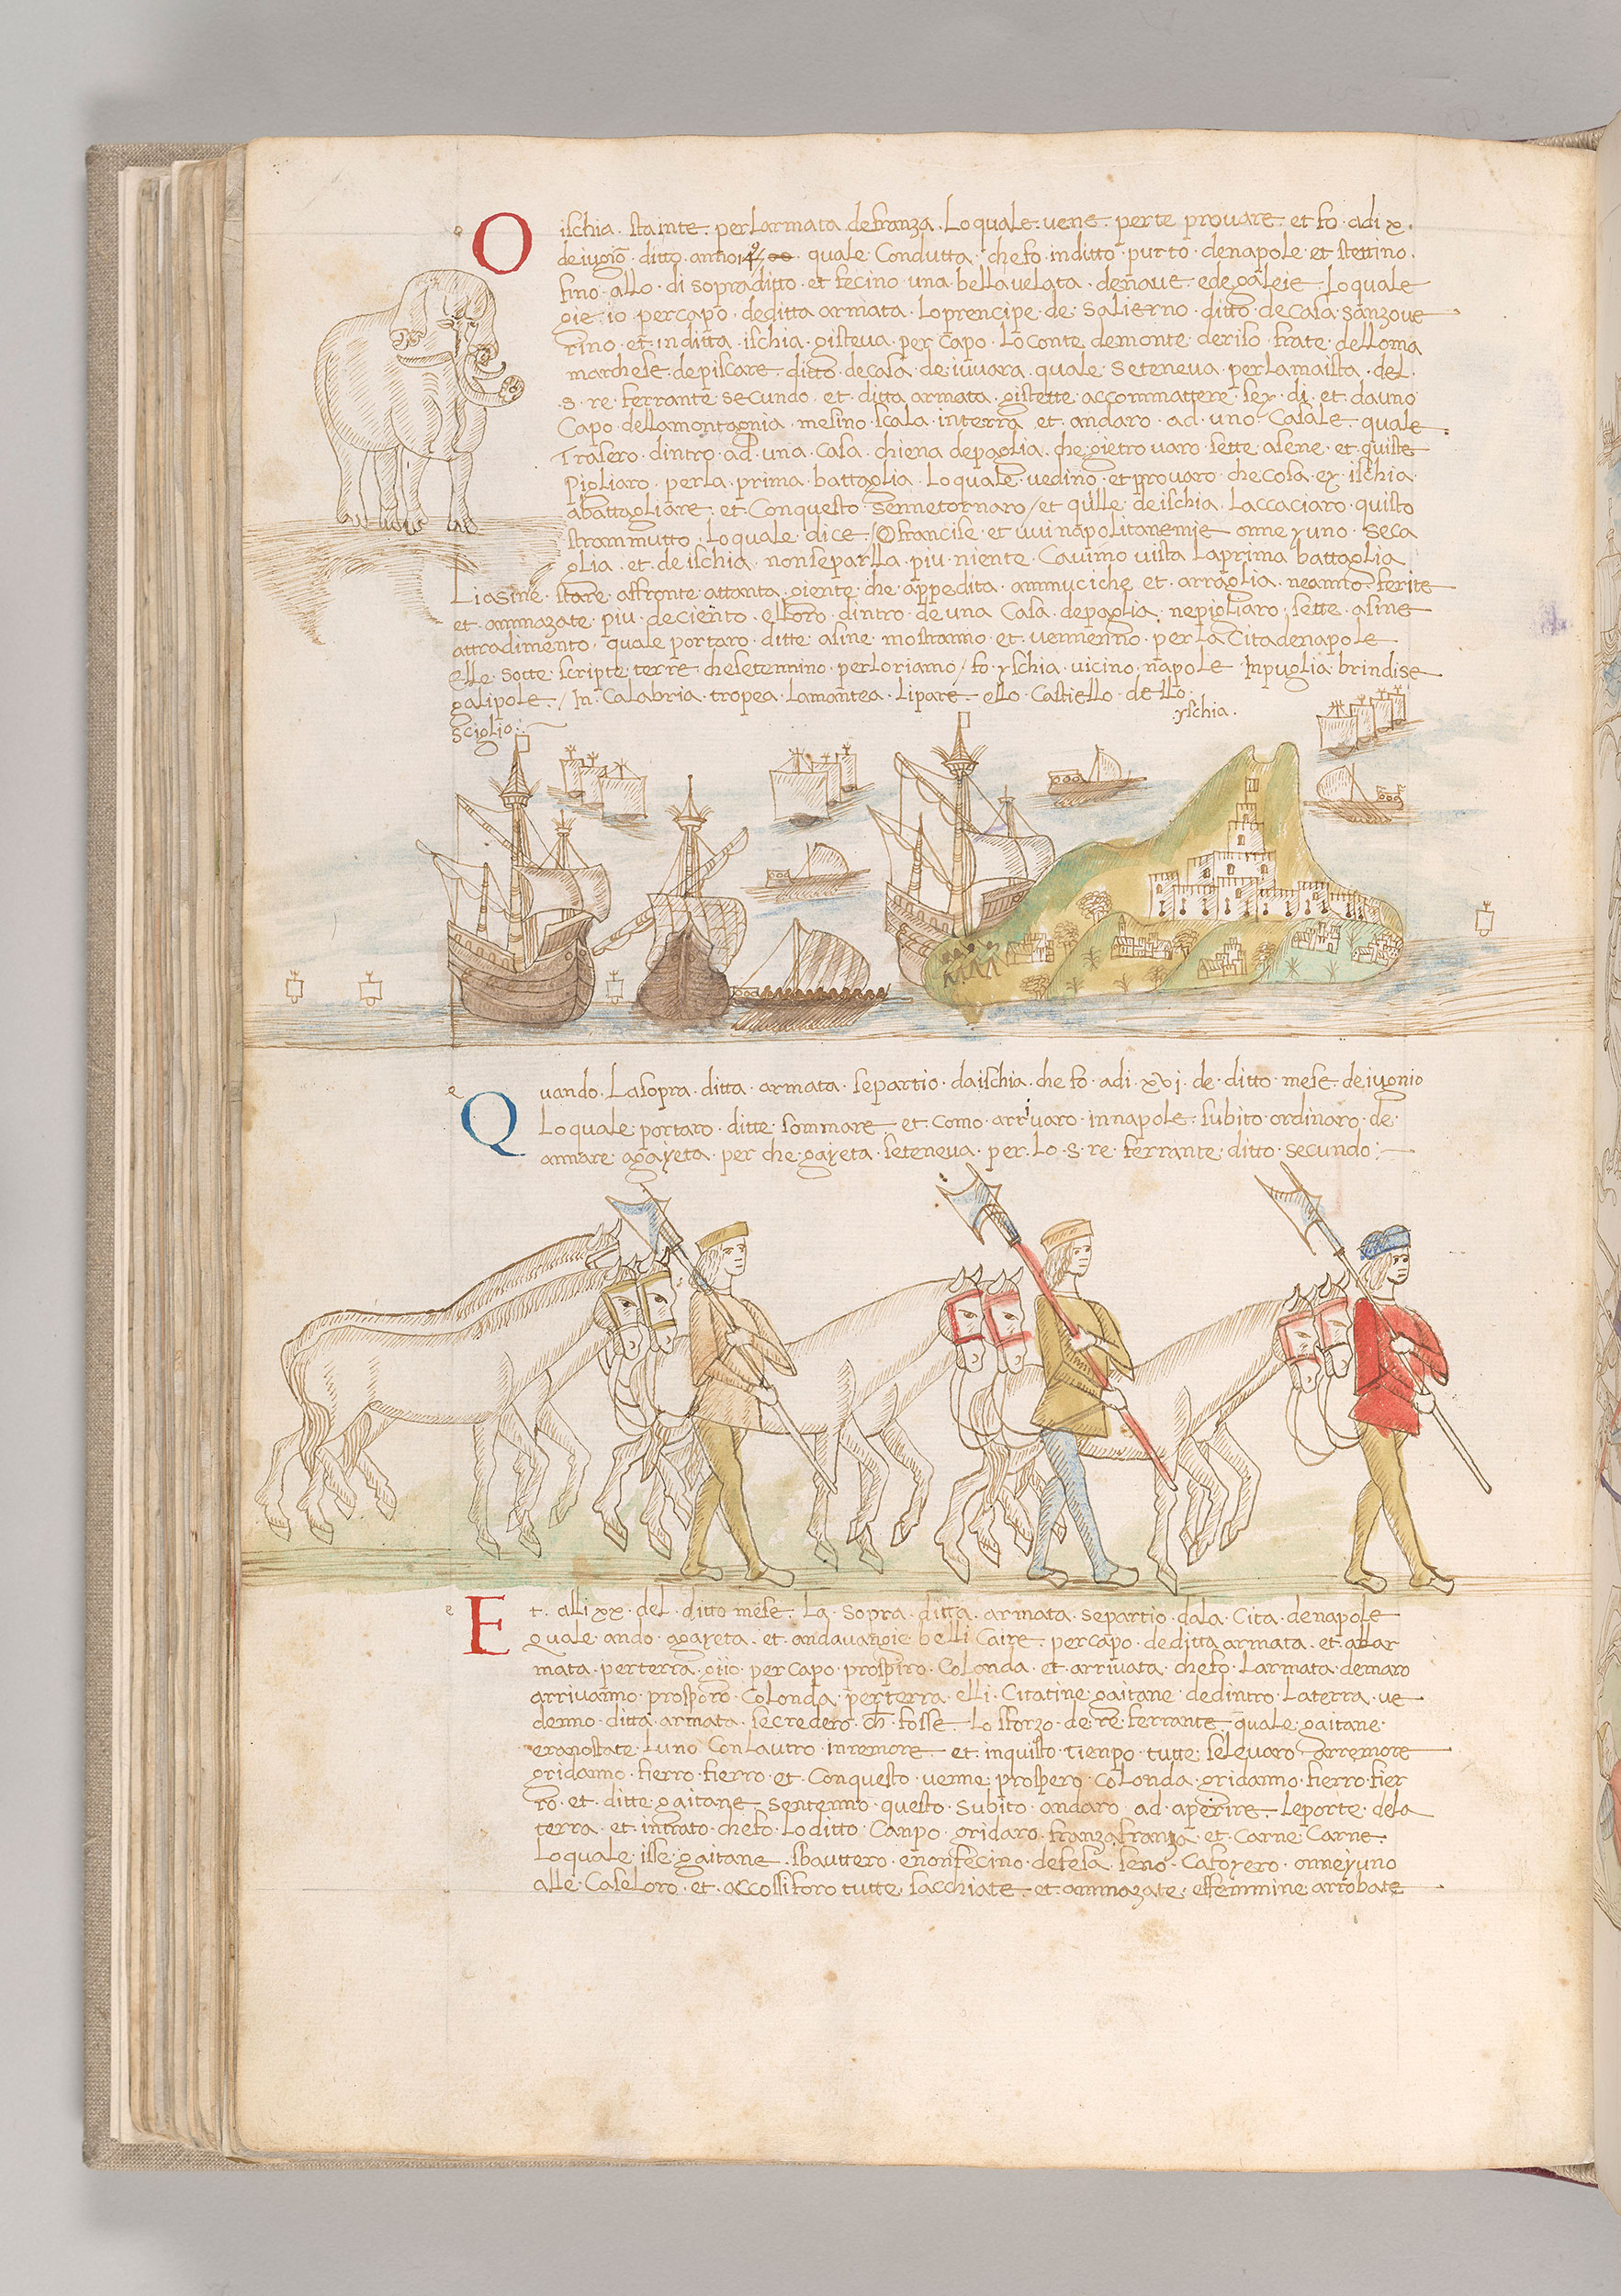 O ischia · stainte · per larmata de franza · Lo quale · vene · per te provare · et fo · adi x ·
de iugio · ditto anno · quale Condutta · che fo · in ditto · purto · de napole · et stettino ·
fino · allo · di sopraditto · et fecino · una · bella velata · de nave · e de galeie · Lo quale
gie · io per capo · de ditta armata · Lo prencipe · de · Salierno · ditto · de casa · sanzove
rino · et · in ditta · ischia · gisteva · per capo · Lo conte de monte deriso · frate · dello ma
marchese · de piscare · ditto · de casa · de · iuvara · quale · se teneva · per la maista · del ·
s · re · ferrante secundo · et · ditta armata · gistette · accommattere · sex · di · et · da uno
Capo · della montagnia · mesino · scala · in terra · et · andaro · ad · uno · Casale · quale ·
Trasero · dintro · ad · una · casa · chiena de paglia · che gie trovaro · sette · asene · et · quiste
Pigliaro · per la · prima · battaglia · Lo quale · vedino · et provaro · che cosa · ex · ischia
abattagliare · et · Conquesto · sennetornaro / et · quille · de ischia · Laccaciaro · quisto
strammutto · Lo quale · dice · / O francise · et · vui napolitane mie · onne yuno · se ca
glia · et · de ischia · non se parlla · piu · niente · Ca vimo vista La prima battaglia
Li asine · stare · affronte · attanta · giente · che · appedita · ammuciche · et · arraglia · ne anno · ferite
et · ammazate · piu · de ciento · elloro · dintro · de una Casa · de paglia · ne pigliaro · sette · asine
attradimento · quale portaro · ditte · asine · mostranno · et · vennenno · per la Cita de napole
elle · sotte · scripte · terre · che se tennino · per lo riamo / fo · yschia · vicino · napole · In puglia · brindise
galipole · / In · Calabria · tropea · Lamantea · Lipare · ello · Castiello · dello
sciglio ·
yschia ·
e
Q uando · La sopra · ditta · armata · se partio · da ischia · che fo · adi · xvj · de · ditto · mese · de iugnio
Lo quale · portaro · ditte · sommare · et · como · arrivaro · in napole · subito · ordinaro · de ·
annare · agayeta · per che · gayeta · se teneva · per · Lo · s · re · ferrante · ditto · secundo
e
E t · alli xx · del · ditto mese · La · sopra · ditta · armata · se partio · dala · Cita · de napole
Quale · ando · agayeta · et · andavangie belli Caire · per capo · de ditta armata · et · allar
mata · per terra · giio · per capo · prospiro · Colonda · et · arrivata · che fo · Larmata · de maro
arrivanno · prosporo · Colonda · per terra · elli · Citatine gaitane · de dintro · La terra · ve
denno · ditta · armata · se credero · ch · fosse · Lo sforzo · de re · ferrante · quale · gaitane ·
erano state · Luno · Con Lautro · in remore · et · inquisto · tienpo · tutte · se levaro · arremore
gridanno · fierro · fierro · et · Conquesto · venne · prospero · Colonda · gridanno · fierro · fier
ro · et · ditte · gaitane · sentenno · questo · subito · andaro · ad · aperire · Le porte · dela
terra · et · intrato · che fo · Lo ditto · Canpo · gridaro · franza franza · et · Carne · Carne ·
Lo quale · isse · gaitane · sbauttero · e non fecino · defesa · seno · ca foyero · onne yuno
alle · Case Loro · et · accossi foro tutte · sacchiate · et · ammazate · effemmine arrobate